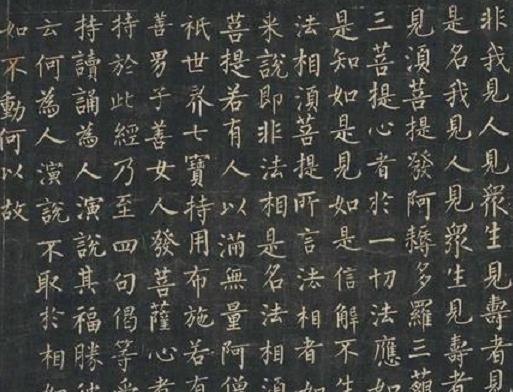 非我見人見衆生見壽者見
是名我見人見衆生見壽者
見須菩提發阿耨多羅三藐
三菩提心者於一切法應如
是知如是見如是信解不生
法相須菩提所言法相者如
来說即非法相是名法相須
菩提若有人以滿無量阿僧
祇世界七寶持用布施若有
善男子善女人發菩薩心者
持於此經乃至四句偈等受
持讀誦為人演說其福勝彼
云何為人演說不取於相如
如不動何以故